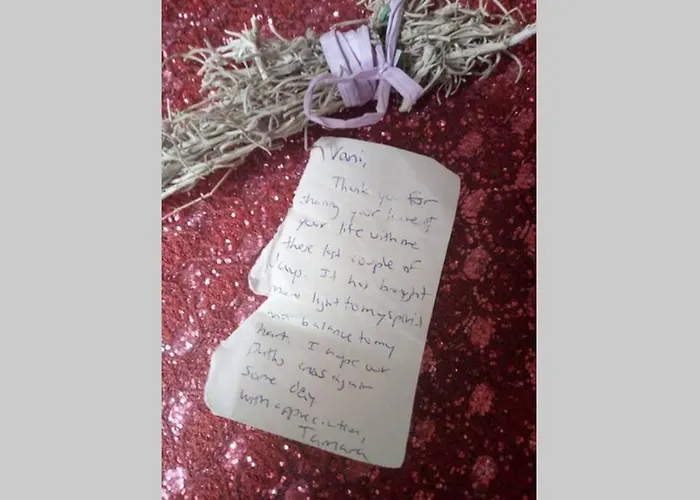 Vani,
Thank you for
sharing your home &
your life with me
these last couple of
days. It has brought
more light to my spirit
and balance to my
heart. I hope our
paths cross again
some day
with appreciation,
Tamara